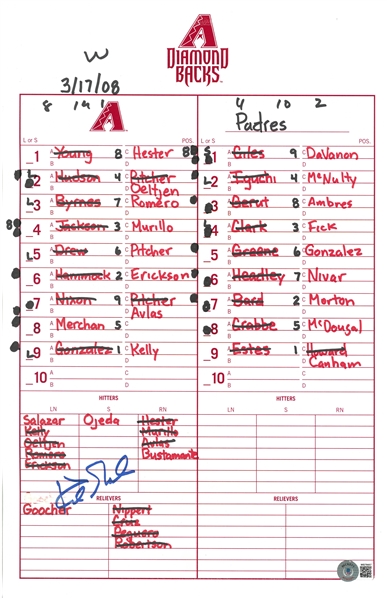 DIAMOND
BACKS
W
3/17/08
8 19 1
4 10 2
A
Padres
L or S POS. L or S POS.
1 Young 8 Hester 8
S 1 Giles 9 DaVanon
L 2 Hudson 4 Pitcher
Oeltjen
2 Eguchi 4 McNulty
L 3 Byrnes 7 Romero
3 Gerut 8 Ambres
8 4 Jackson 3 Murillo
L 4 Clark 3 Fick
L 5 Drew 6 Pitcher
5 Greene 6 Gonzalez
6 Hammock 2 Erickson
6 Headley 7 Nivar
7 Nixon 9 Pitcher
Avlas
7 Bard 2 Morton
8 Merchan 5
8 Crabbe 5 McDougal
L 9 Gonzalez 1 Kelly
9 Estes 1 Howard
Canham
10
10
HITTERS HITTERS
LN S RN LN S RN
Salazar Ojeda Hester
Kelly Murillo
Oeltjen Avlas
Romero Bustamante
Erickson
RELIEVERS RELIEVERS
Goocher Nippert
Cruz
Peguero
Robertson